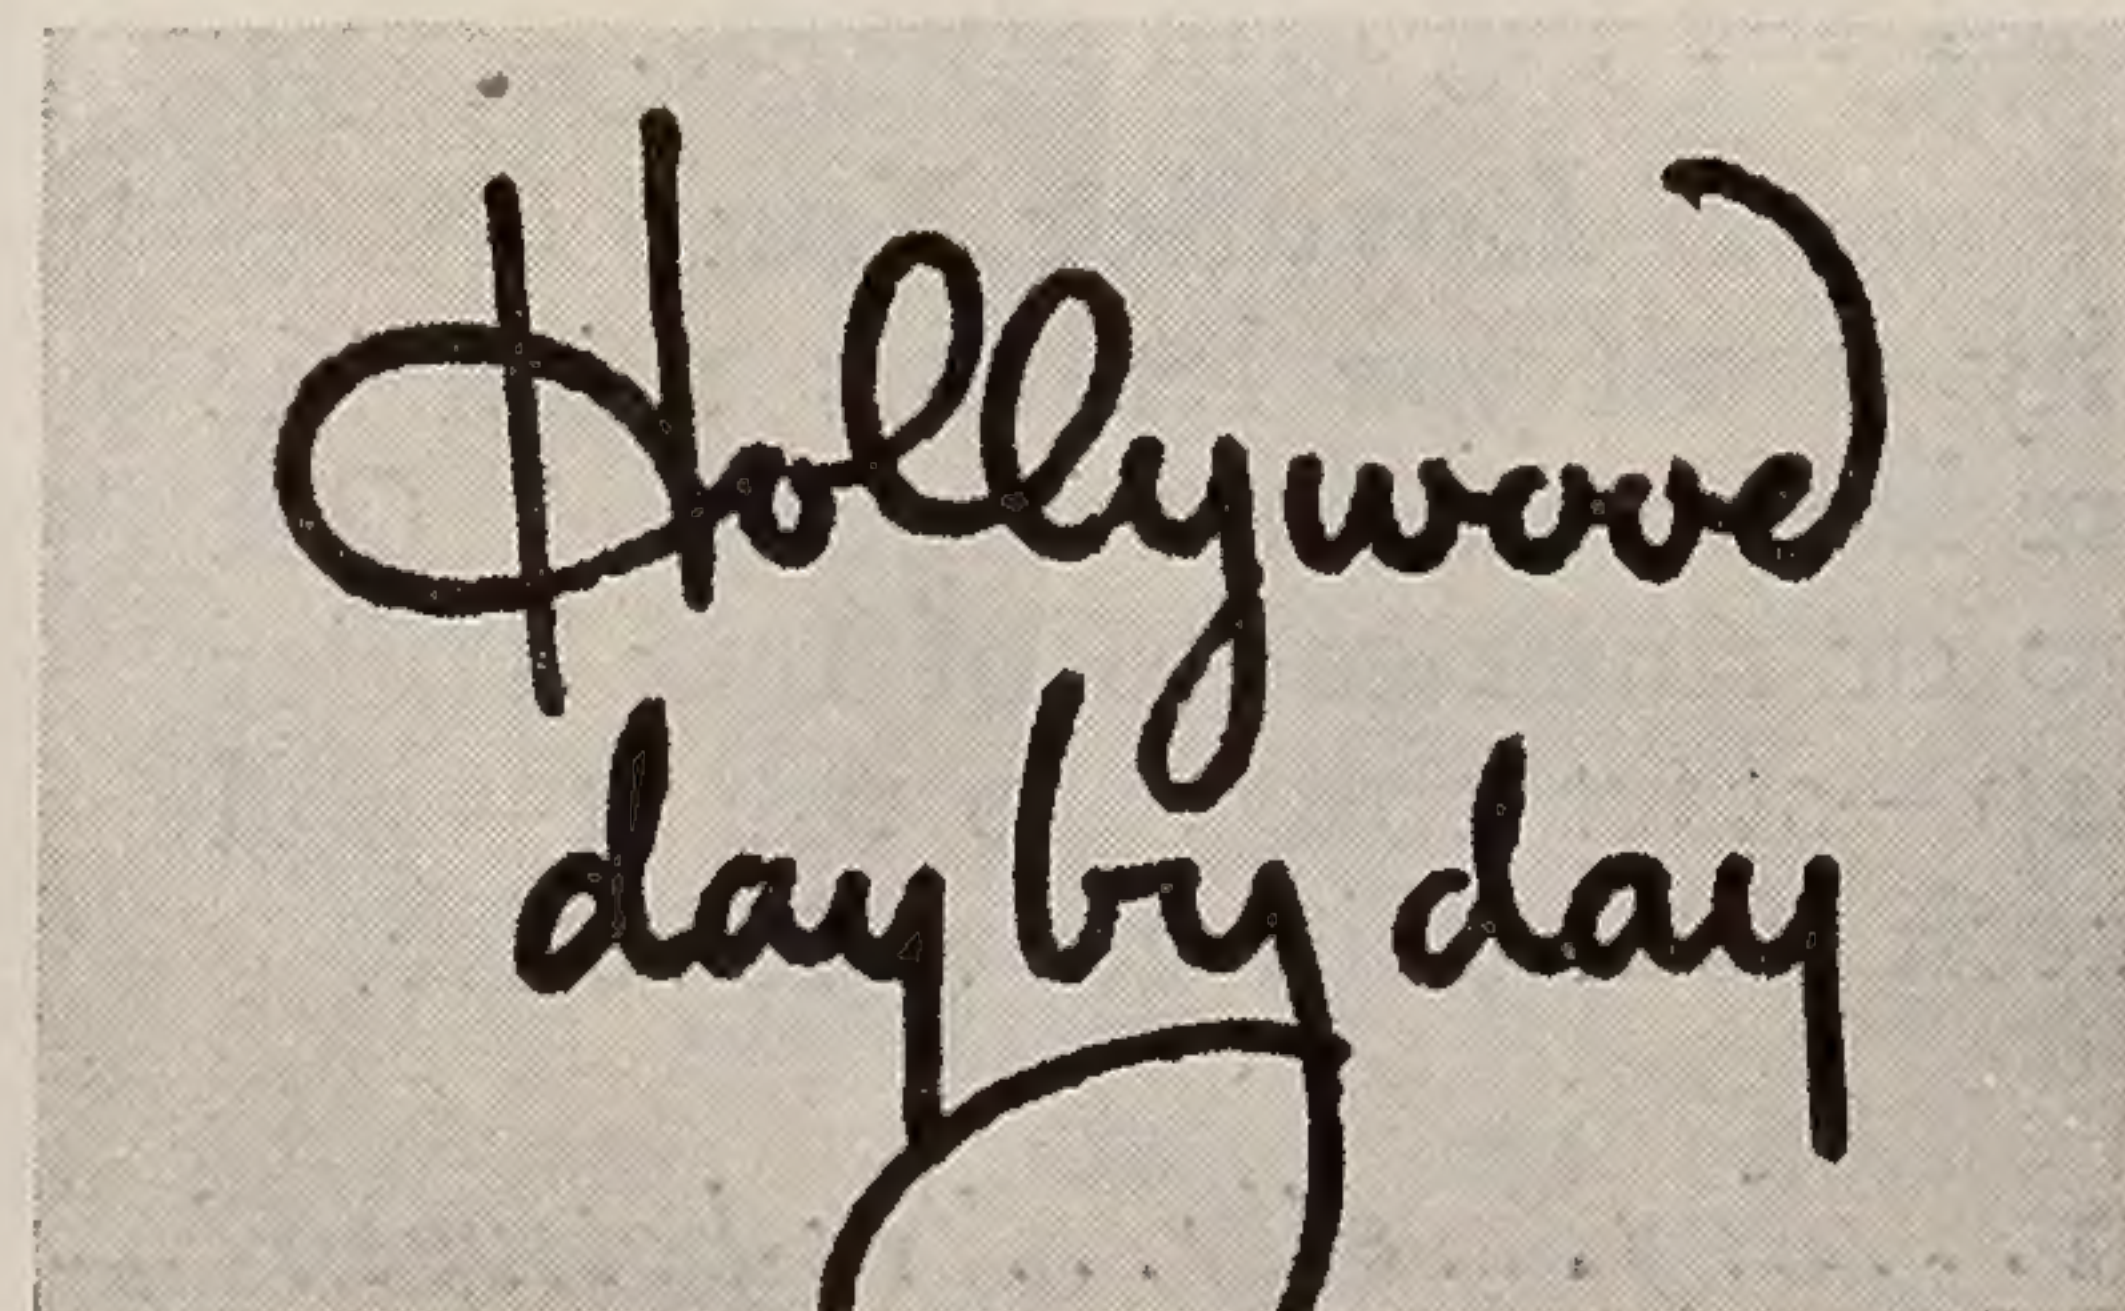 Hollywood
day by day